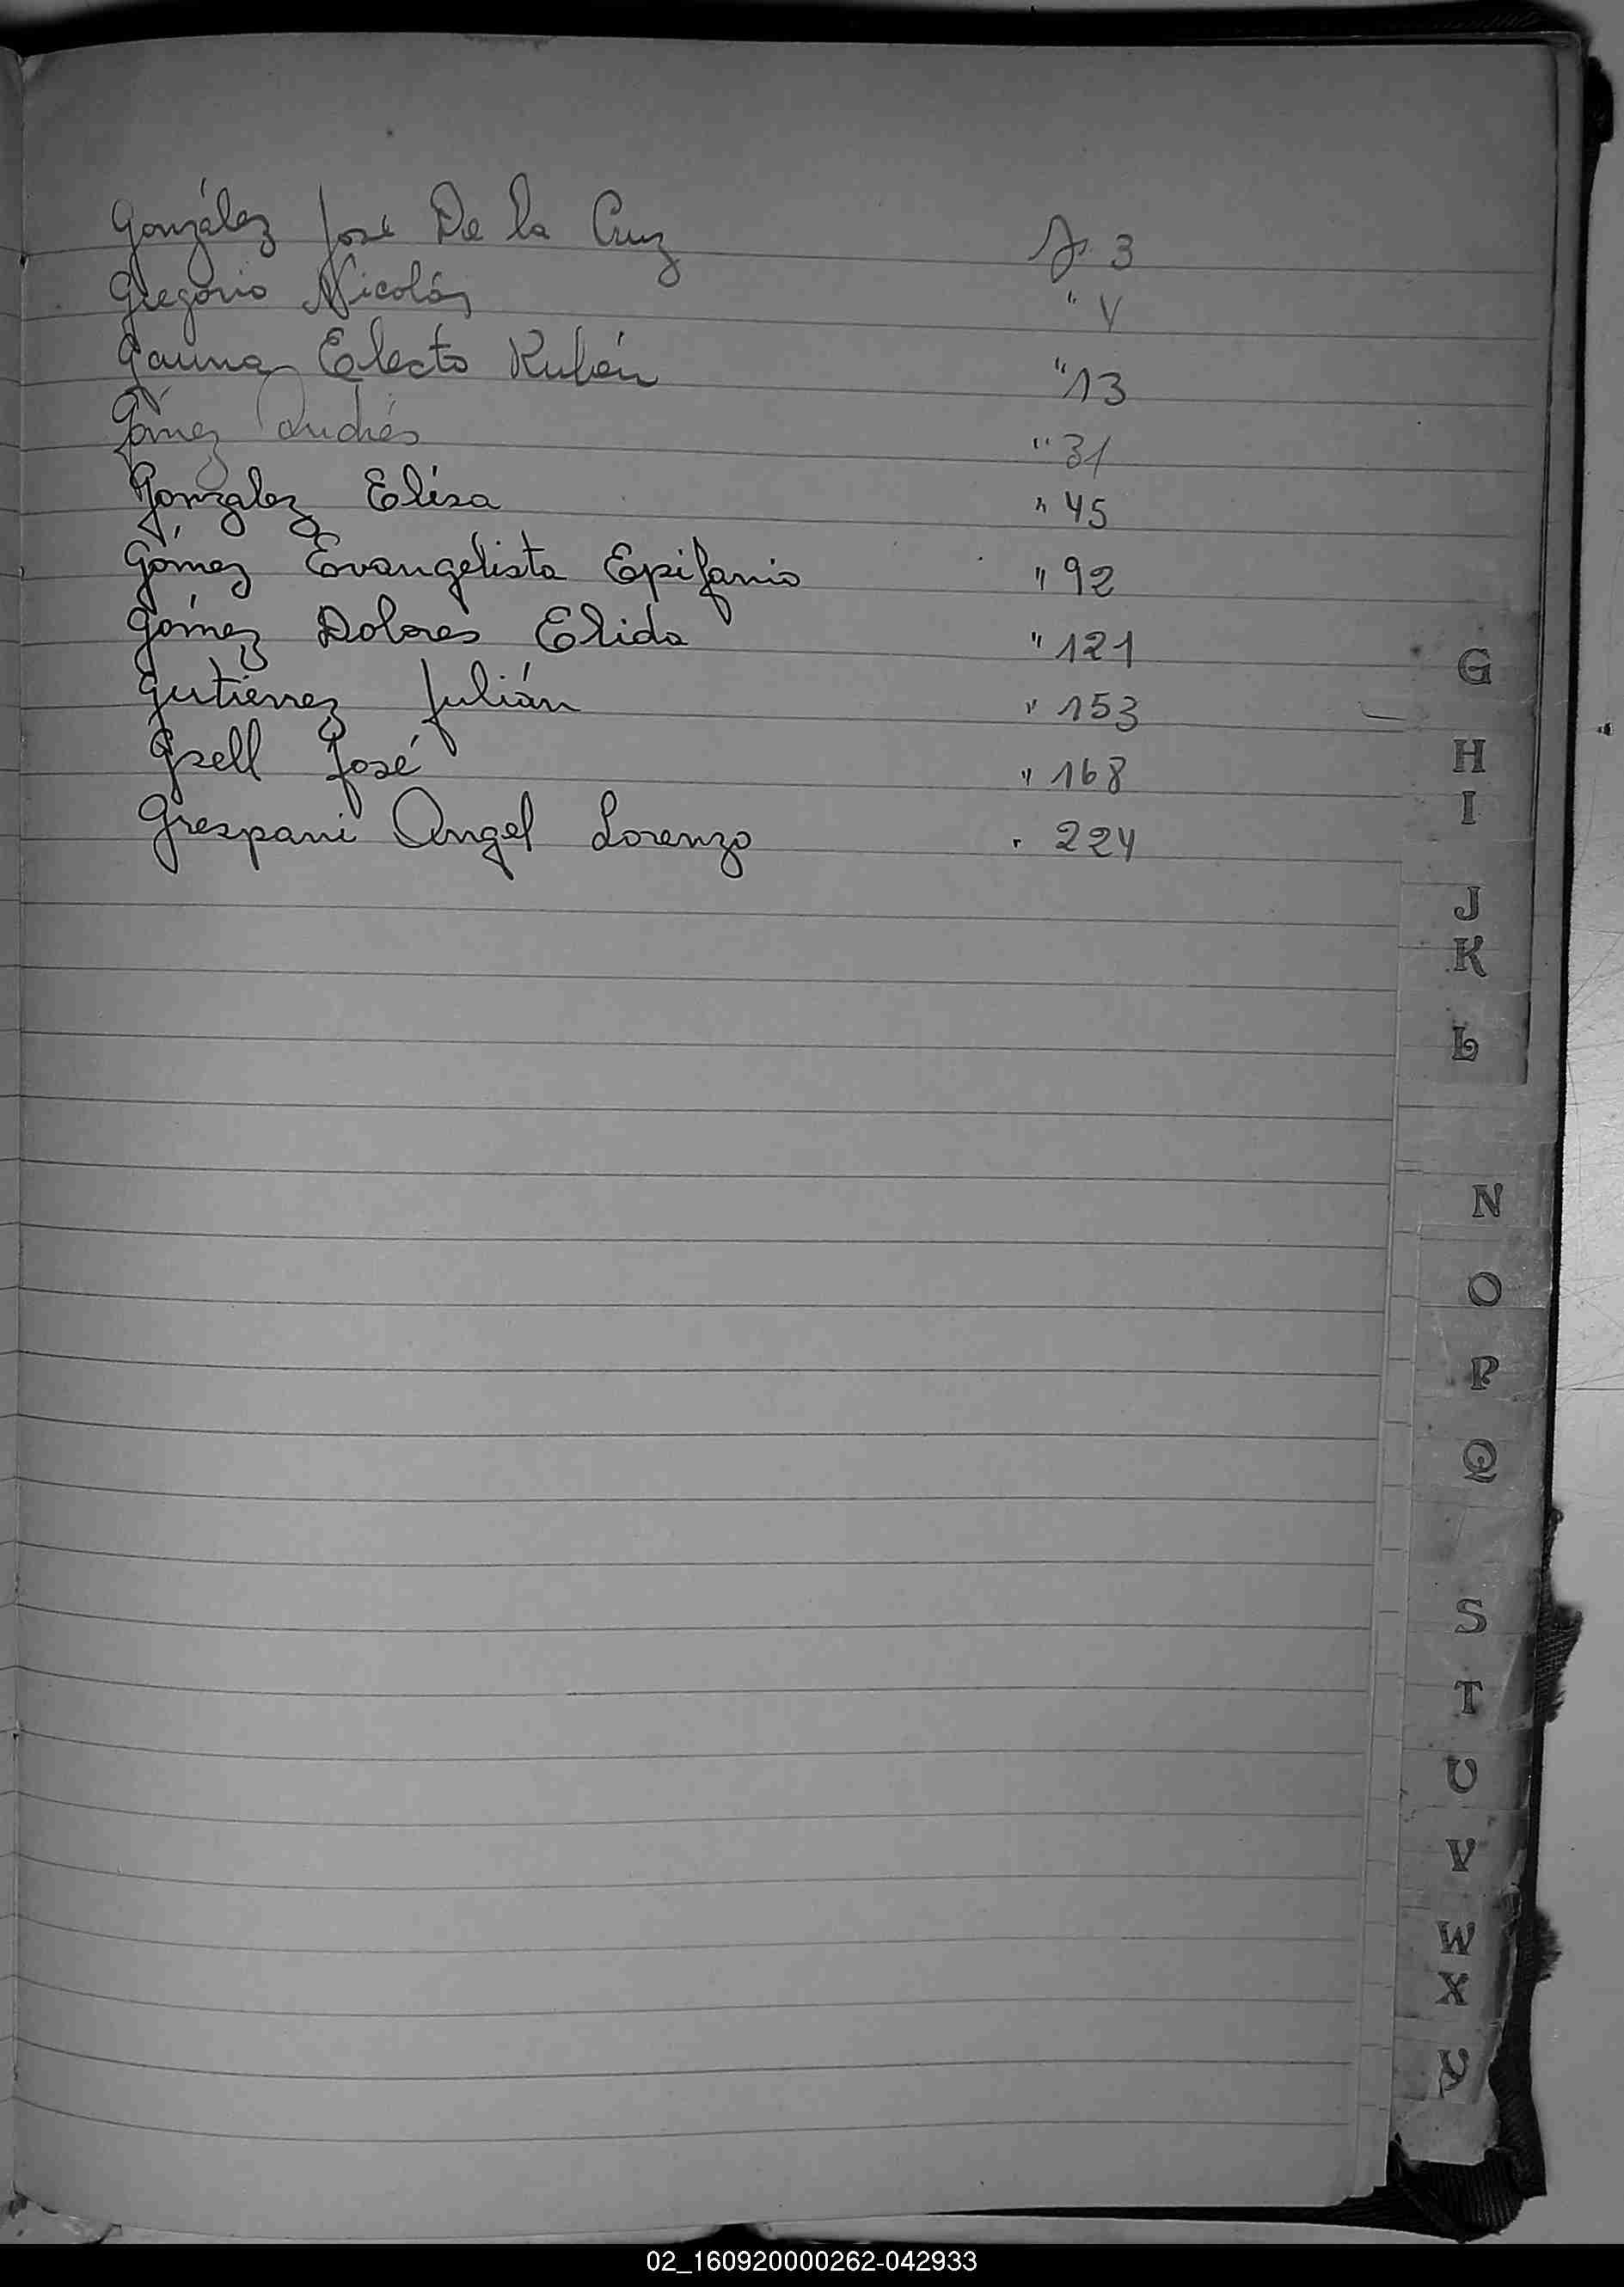 González José De la Cruz fs. 3
Gregorio Nicolás " V
Gauna Electo Rubén " 13
Gómez Andrés " 31
Gonzalez Elisa " 45
Gómez Evangelista Epifanio " 92
Gómez Dolores Elida " 121
Gutierrez Julián " 153
Gsell José " 168
Grespani Angel Lorenzo " 224
G
H
I
J
K
L
N
O
P
Q
S
T
U
V
W
X
Y
02_160920000262-042933